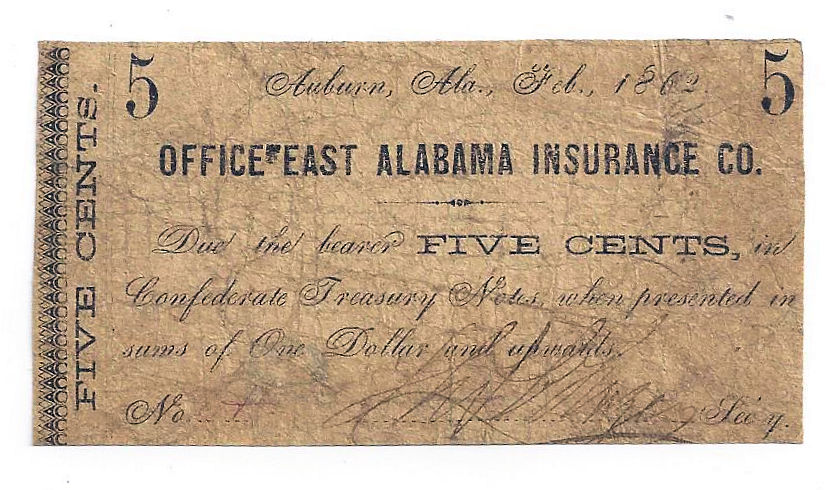 5 Auburn, Ala., Feb., 1862. 5
OFFICE OF EAST ALABAMA INSURANCE CO.
Due the bearer FIVE CENTS, in
Confederate Treasury Notes, when presented in
sums of One Dollar and upwards.
No. Sec'y.
FIVE CENTS.